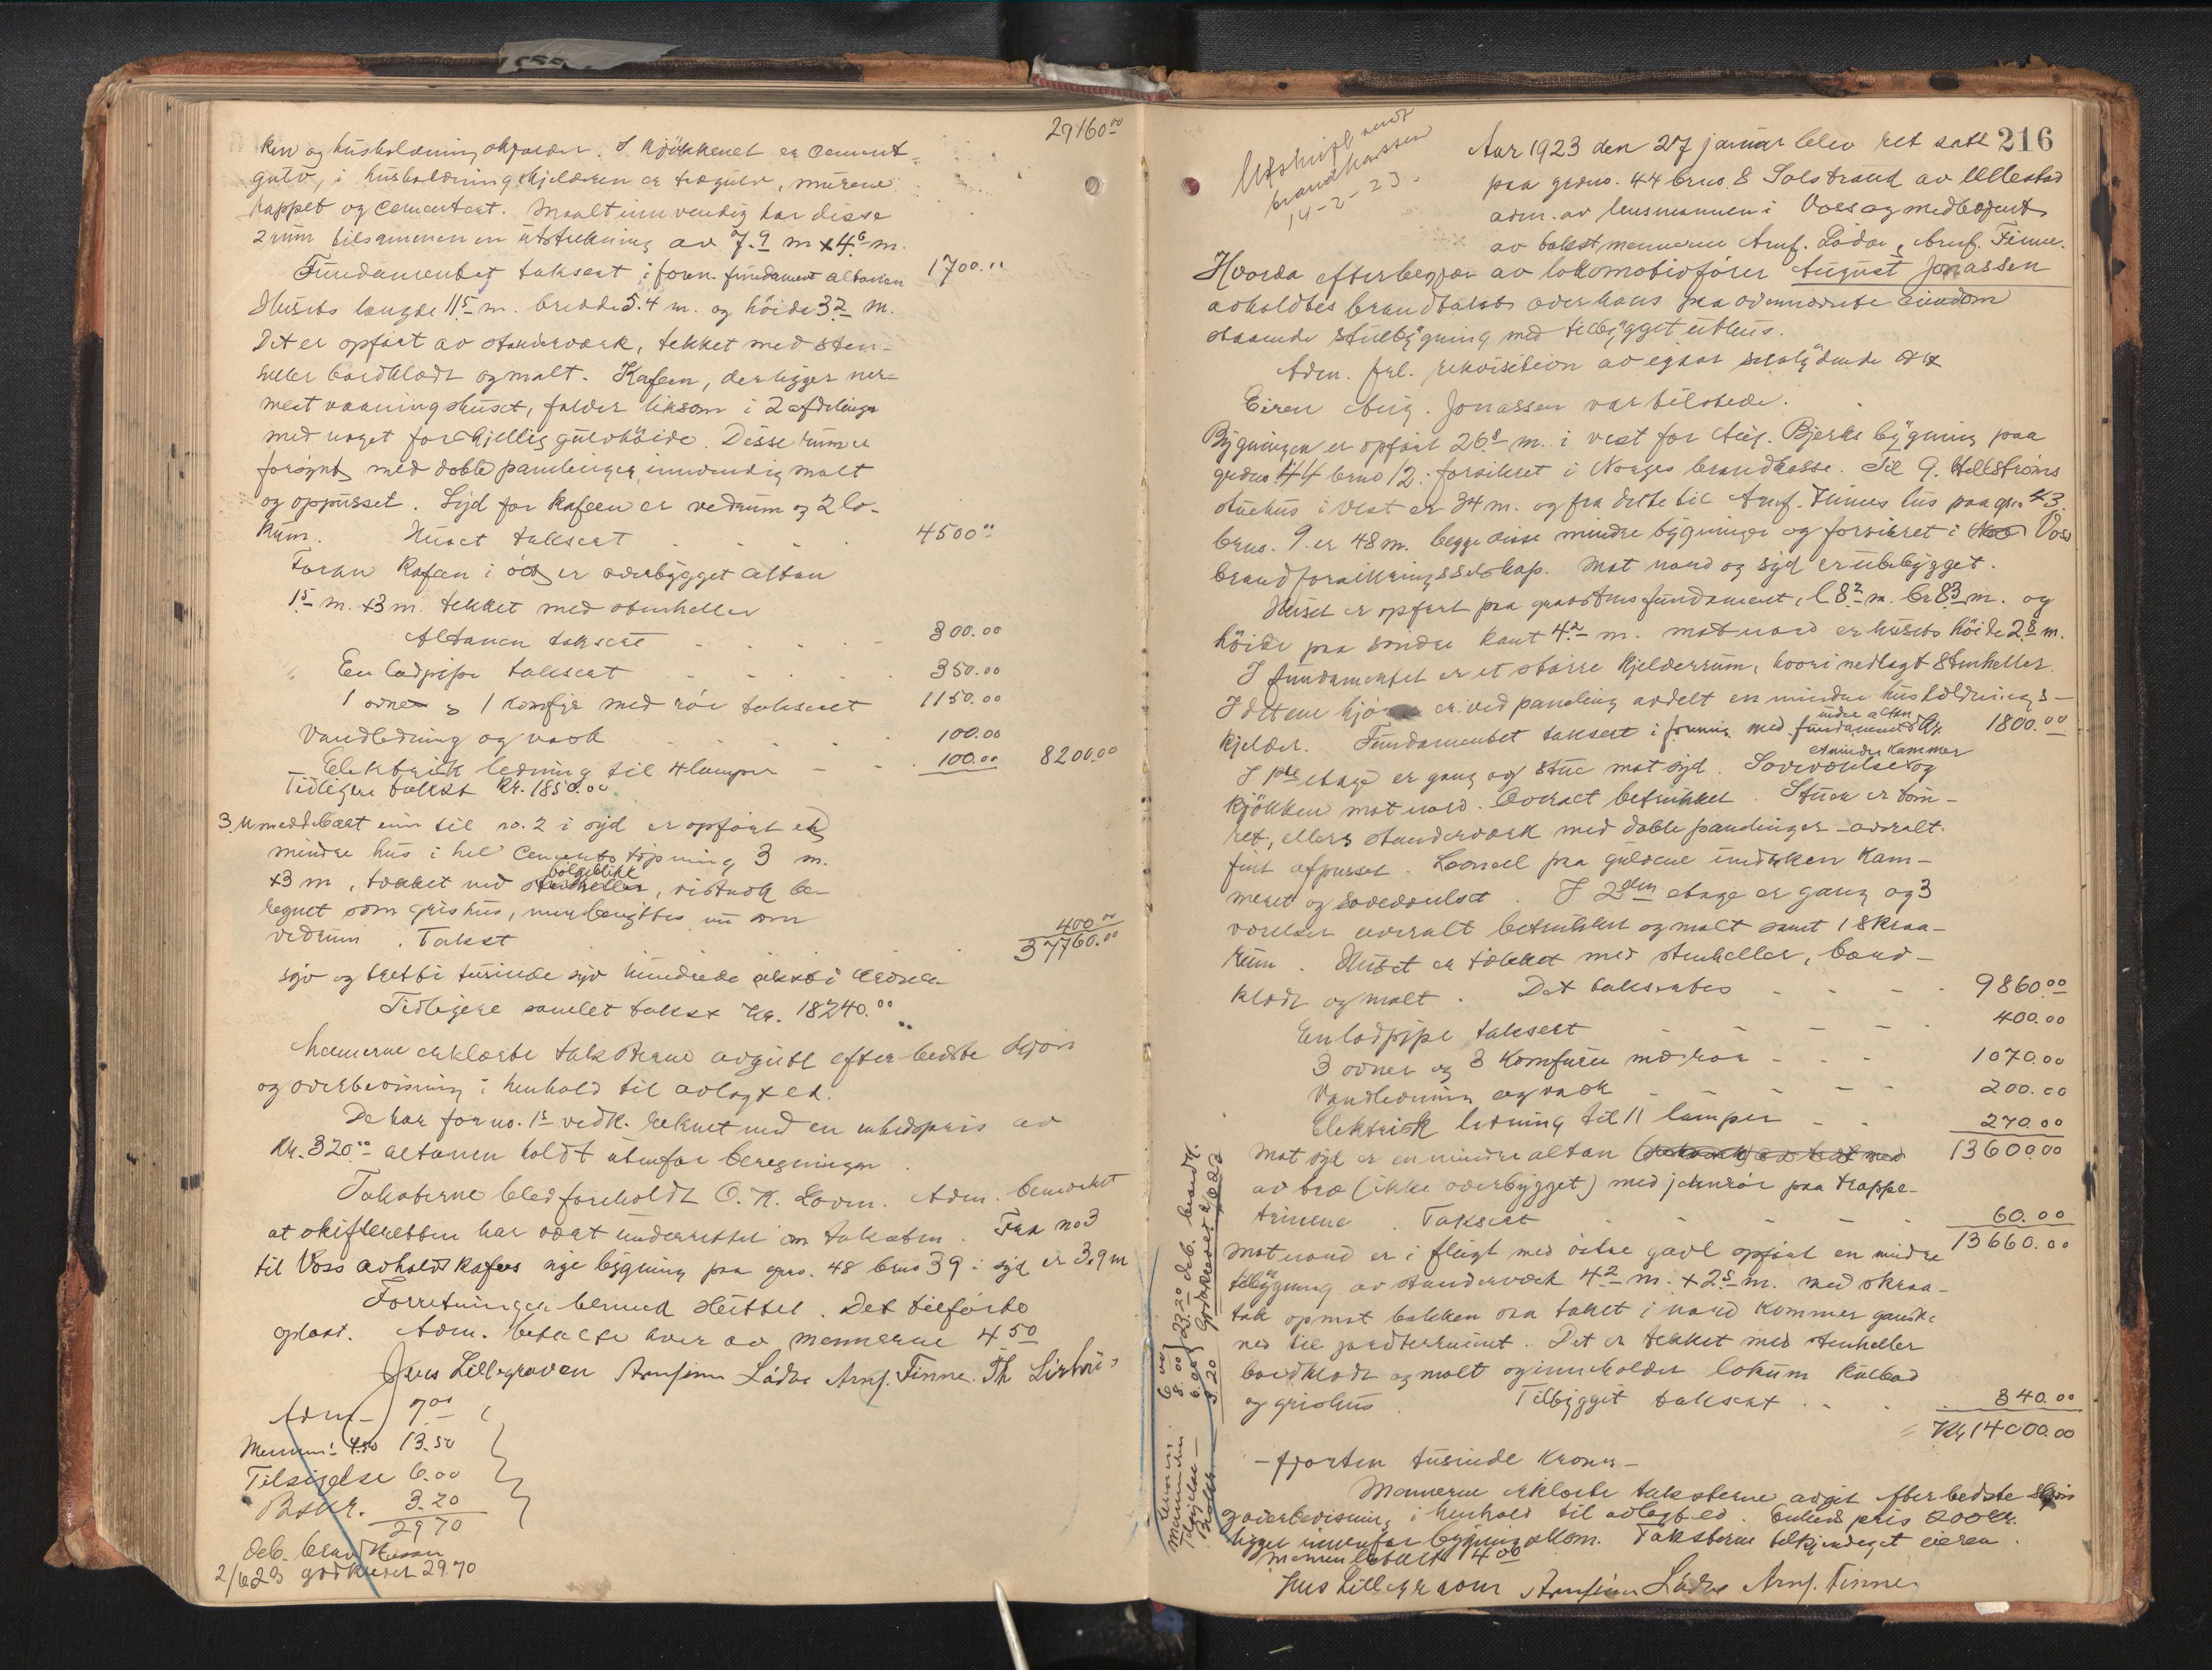 29160.00
ken og husholdningskjælder. I kjøkkenet er cement-
gulv, i husholdningskjelderen er trægulv, murene
rappet og cementert. Maalt innvendig har disse
2 rum tilsammen en utstrekning av 7.9 m x 4.6 m.
Fundamentet taksert i foren. fundament altanen 1700.00
Husets længde 11.5 m. bredde 5.4 m. og høide 3.2 m.
Det er opført av stenderværk, tekket med sten-
heller bordklædt og malt. Kafeen, der ligger nær-
mest vaaningshuset, falder liksom i 2 afdelinger
med noget forskjellig gulvhøide. Disse rum er
forsynt med doble panelinger, innvendig malt
og oppusset. Syd for kafeen er vedrum og 2 lo-
kum. Huset taksert - - - 4500.00
Foran Kafeen i øst er overbygget altan
1.5 m. x 3 m. tekket med stenheller
Altanen taksert - - - 300.00
En ladpipe taksert - - - 350.00
1 ovn og 1 komfyr med rør taksert 1150.00
Vandledning og vask - - - 100.00
Elektrisk ledning til 4 lamper - - 100.00 8200.00
Tidligere takst kr. 1850.00
3. Umiddelbart inn til no. 2 i syd er opført et
mindre hus i hel cementstøpning 3 m.
bølgeblikk
x 3 m, tækket med stenheller, be-
regnet som grishus, men benyttes nu som
vedrum. Takst - - 400.00
37760.00
syv og tretti tusinde syv hundrede seksti kroner
Tidligere samlet takst kr. 18240.00
Mennerne erklærte taksterne avgitt efter bedste skjøn
og overbevisning i henhold til avlagt ed.
De har for no. 1 vedk. reknet med en enhedspris av
Kr. 320.00 altanen holdt utenfor beregningen.
Taksterne blev foreholdt O. K. Lovn. Adm. bemerket
at skifteretten har vært underrettet om taksten. Fra no 3
til Voss avholdskafees nye bygning paa gno. 48 bno 39 i syd er 3.9 m
Forretningen dermed sluttet. Det tilførte
oplæst. Adm. betalte hver av mennerne 4.50
Jens Lillegraven Arnfinn Lådve Arnf. Finne. Th Lirhus
Adm - 7.00
Mennene: 4.50 13.50
Tilsigelse 6.00
Beskr. 3.20
29.70
deb. brandkassen
2/6 23 godkjendt 29.70
216
Utskrift sendt
brandkassen
14-2-23.
Aar 1923 den 27 januar blev ret satt
paa grdno. 44 brno. 8 Solstrand av Ullestad
adm. av lensmannen i Voss og medbetjent
av takstmennerne Arnf. Lådve, Arnf. Finne.
Hvorda efter begjær av lokomotivfører August Jonassen
avholdtes brandtakst over hans paa ovennævnte eiendom
staaende stuebygning med tilbygget uthus.
Adm. frl. rekvisition av egnar saalydende
Eieren Aug. Jonassen var tilstede.
Bygningen er opført 26.8 m. i vest for Aug. Bjerks bygning paa
grdno. 44 brno 12. forsikret i Norges brandkasse. Til G. Hellstrøms
stuehus i vest er 34 m. og fra dette til Arnf. Finnes hus paa gno. 43
brno. 9. er 48 m. begge disse mindre bygninger og forsikret i Voss
brandforsikringsselskap. Mot nord og syd er ubebygget.
Huset er opført paa graastensfundament, l. 8.2 m. br. 8.3 m. og
høide paa søndre kant 4.2 m. mot nord er husets høide 2.8 m.
I fundamentet er et større kjelderrum, hvori nedlagt stenheller.
I dettene hjørne er ved paneling avdelt en mindre husholdnings-
under altan
kjelder. Fundamentet taksert i forening med fundamentet Kr. 1800.00
et mindre kammer
I 1ste etage er gang og stue mot syd. Soveværelse og
kjøkken mot nord. Overalt betrukket. Stuen er tøm-
ret, ellers stenderværk med doble panelinger - overalt
fint afpusset. Linoel paa gulvene undtaken kam-
meret og soveværelset. I 2den etage er gang og 3
værelser overalt betrukket og malt samt 1 skraa-
rum. Huset er tækket med stenheller, bord-
klædt og malt. Det taksertes - - - 9860.00
En ladpipe taksert - - - 400.00
3 ovner og 3 komfurer med rør - - - 1070.00
Vandledning og vask - - - 200.00
Elektrisk ledning til 11 lamper - - 270.00
13600.00
Mot syd er en mindre altan
av træ (ikke overbygget) med jernrør paa trappe-
trinene. Taksert - - - 60.00
13660.00
Mot nord er i flugt med østre gavl opført en mindre
tilbygning av stenderværk 4.2 m. x 2.5 m. med skraa-
tak opmot bakken saa taket i nord kommer ganske
ned til jordterrænet. Det er tekket med stenheller
bordklædt og malt og inneholder lokum kulbod
og grishus. Tilbygget taksert - - 340.00
Kr 14000.00
- fjorten tusinde kroner -
Mennerne erklærte taksterne avgit efter bedste skjøn
og overbevisning i henhold til avlagt ed. Enheds pris 200 kr.
ligger innenfor bygningskom. Taksterne tilkjendegit eieren.
Mennene betalt 4.00
Jens Lillegraven Arnfinn Lådve Arnf. Finne
Lensm. 6.00
Mennene 8.00
Tilsigelse 6.00
Beskr. 3.20
23.20 deb. brandk.
Godkjendt 2/6 23